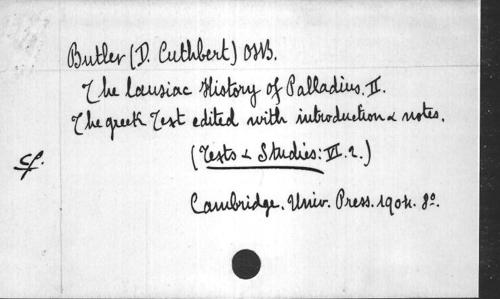 Butler (D. Cuthbert) OSB.
The Lausiac History of Palladius. II.
The greek Text edited with introduction & notes.
cf.
(Texts & Studies: VI. 2.)
Cambridge. Univ. Press. 1904. 8o.